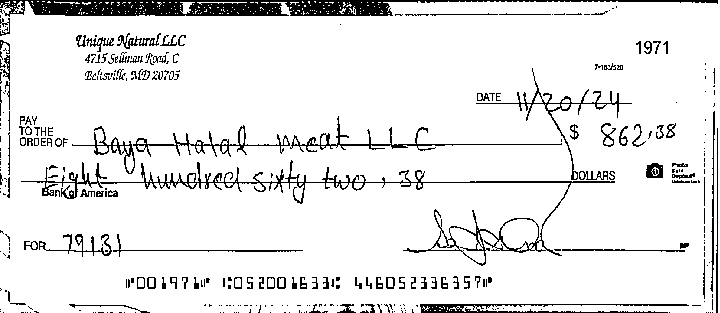 Unique Natural LLC
4715 Sellman Road, C
Beltsville, MD 20705
1971
7-163/520
DATE 11/20/24
PAY
TO THE
ORDER OF Baya Halal meat LLC $ 862.38
Eight hundred sixty two . 38 DOLLARS
Bank of America
FOR 79131
⑈001971⑈ ⑆052001633⑆ 446052336357⑈